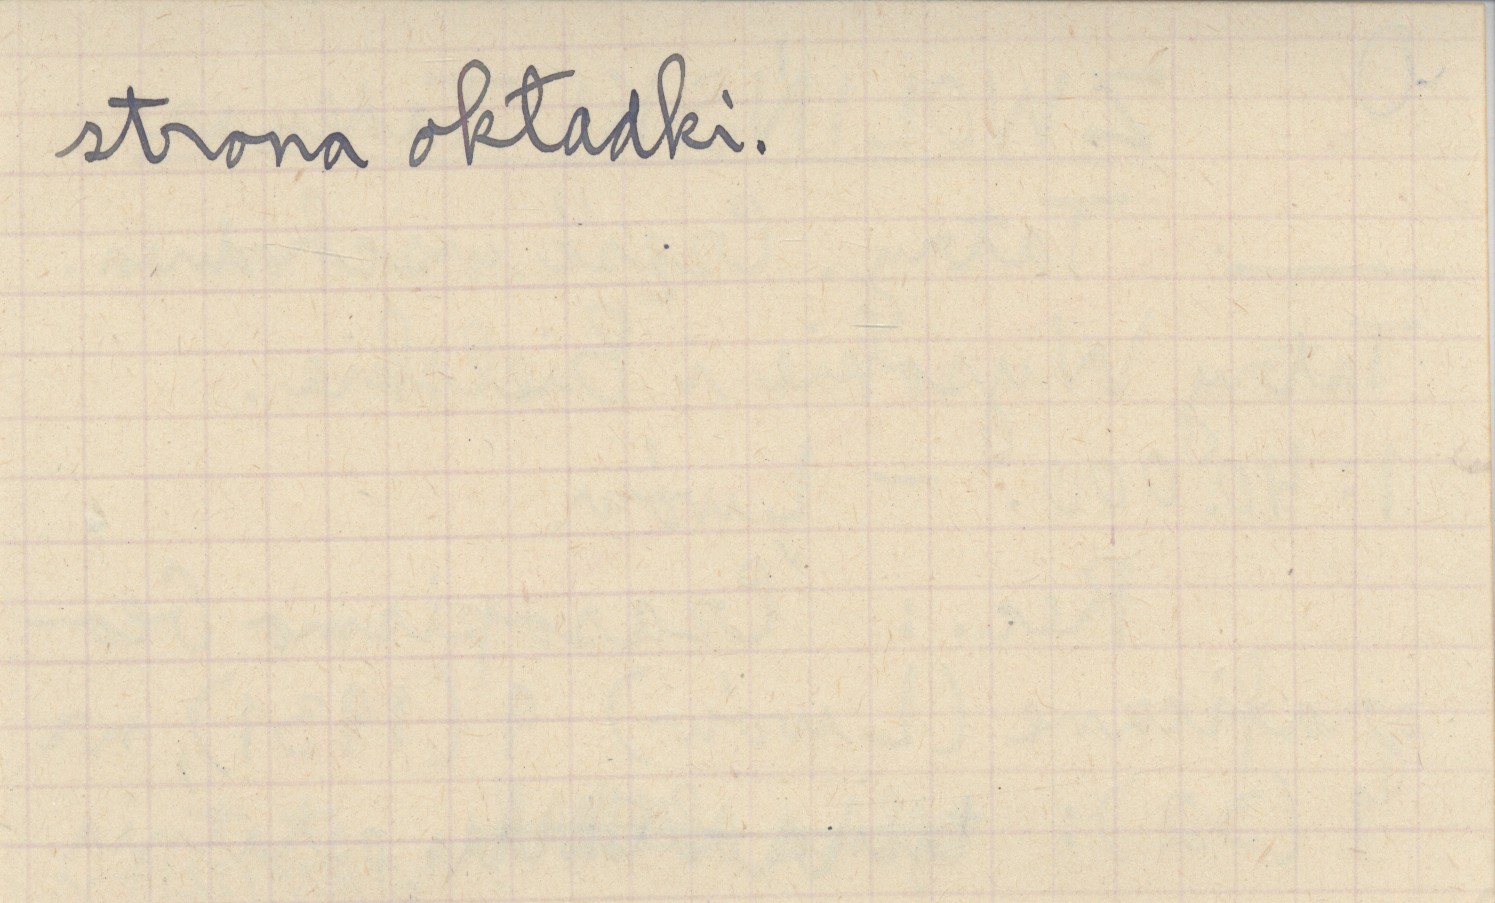 strona okładki.